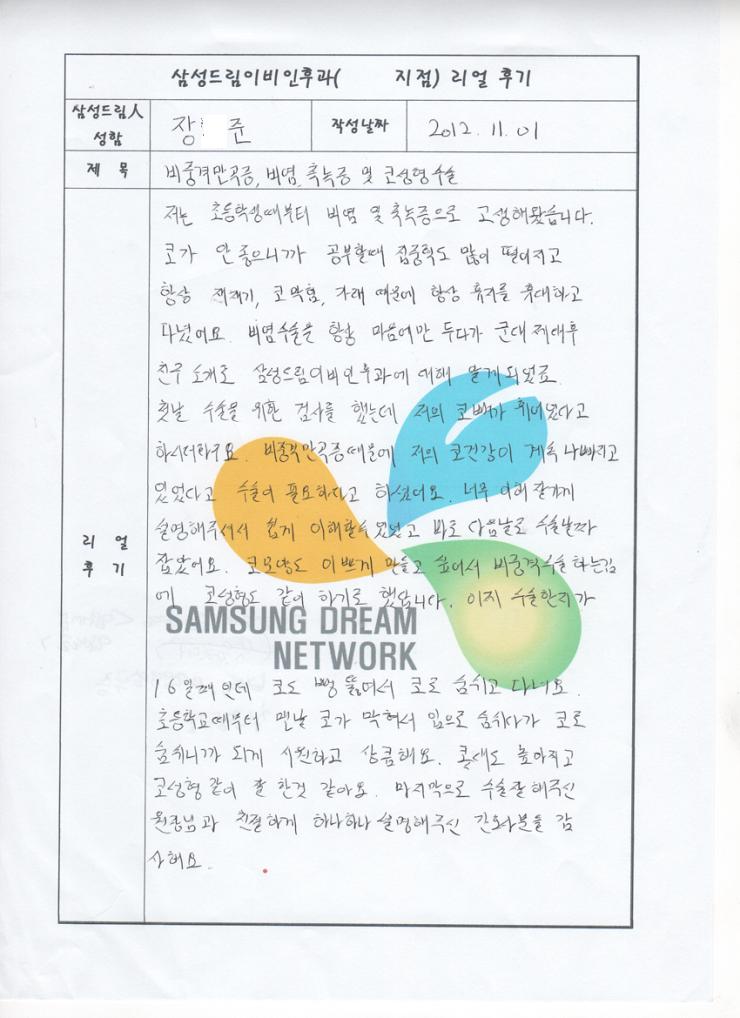 삼성드림이비인후과(      지점) 리얼 후기
삼성드림人
성함
장 준
작성날짜
2012. 11. 01
제 목
비중격만곡증, 비염, 축농증 및 코성형수술
저는 초등학생때부터 비염 및 축녹증으로 고생해왔습니다.
코가 안좋으니까 공부할때 집중력도 많이 떨어지고
항상 재채기, 코막힘, 가래 때문에 항상 휴지를 휴대하고
다녔어요. 비염수술을 항상 마음에만 두다가 군대 제대후
친구 소개로 삼성드림이비인후과에 대해 알게되었죠.
첫날 수술을 위한 검사를 했는데 저의 코뼈가 휘어있다고
하시더라구요. 비중격만곡증때문에 저의 코건강이 계속 나빠지고
있었다고 수술이 필요하다고 하셨어요. 너무 이해 잘가게
설명해주셔서 쉽게 이해할수있었고 바로 다음날로 수술날짜
잡았어요. 코모양도 이쁘게 만들고 싶어서 비중격수술 하는김
에 코성형도 같이 하기로 했답니다. 이제 수술한지가
리 얼
후 기
SAMSUNG DREAM
NETWORK
16일째인데 코도 뻥 뚫려서 코로 숨쉬고 다녀요.
초등학교때부터 맨날 코가 막혀서 입으로 숨쉬다가 코로
숨쉬니까 되게 시원하고 상큼해요. 콧대도 높아지고
코성형 같이 잘 한것 같아요. 마지막으로 수술잘해주신
원장님과 친절하게 하나하나 설명해주신 간호사분들 감
사해요.